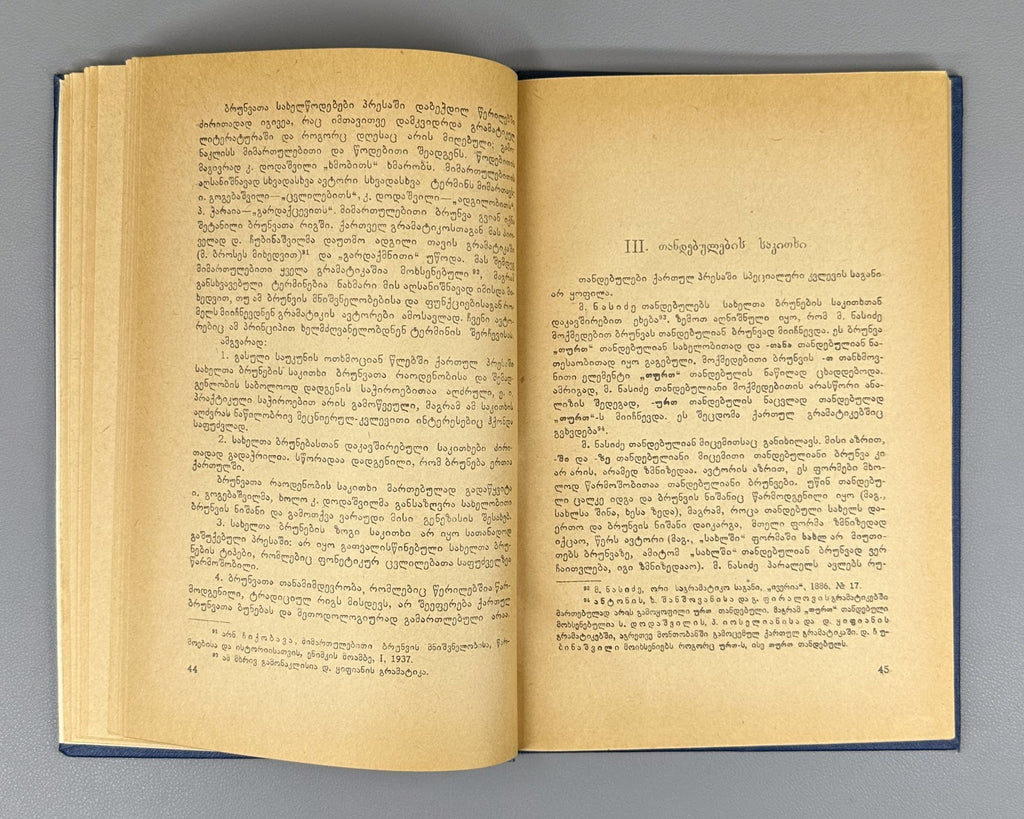 ბრუნვათა სახელწოდებები პრესაში დაბეჭდილ წერილებში
ძირითადად იგივეა, რაც იმთავითვე დამკვიდრდა გრამატიკულ
ლიტერატურაში და როგორც დღესაც არის მიღებული; გამო-
ნაკლისს მიმართულებითი და წოდებითი შეადგენს. წოდებითის
მაგივრად კ. დოდაშვილი „ხმობითს“ ხმარობს. მიმართულებითის
აღსანიშნავად სხვადასხვა ავტორი სხვადასხვა ტერმინს მიმართავს:
ი. გოგებაშვილი—„ცვლილებითს“, კ. დოდაშვილი—„ადგილობითს“,
პ. ჭარაია—„გარდაქცევითს“. მიმართულებითი ბრუნვა გვიან იქნა
შეტანილი ბრუნვათა რიგში. ქართველ გრამატიკოსთაგან მას პირ-
ველად დ. ჩუბინაშვილმა დაუთმო ადგილი თავის გრამატიკაში
(მ. ბროსეს მიხედვით)⁹¹ და „გარდაქმნითი“ უწოდა. მას შემდეგ
მიმართულებითი ყველა გრამატიკაშია მოხსენებული⁹², მაგრამ
განსხვავებული ტერმინებია ნახმარი მის აღსანიშნავად იმისდა მი-
ხედვით, თუ ამ ბრუნვის მნიშვნელობებისა და ფუნქციებისაგან რო-
მელს მიიჩნევდნენ გრამატიკის ავტორები ამოსავლად. ჩვენი ავტო-
რებიც ამ პრინციპით ხელმძღვანელობდნენ ტერმინის შერჩევისას.
ამგვარად:
1. გასული საუკუნის ოთხმოციან წლებში ქართულ პრესაში
სახელთა ბრუნების საკითხი ბრუნვათა რაოდენობისა და შემად-
გენლობის საბოლოოდ დადგენის საჭიროებითაა აღძრული, ე. ი.
პრაქტიკული საჭიროებით არის გამოწვეული, მაგრამ ამ საკითხის
აღძვრას ნაწილობრივ მეცნიერულ-კვლევითი ინტერესებიც ჰქონდა
საფუძვლად.
2. სახელთა ბრუნებასთან დაკავშირებული საკითხები ძირი-
თადად გადაჭრილია. სწორადაა დადგენილი, რომ ბრუნება ერთია
ქართულში.
ბრუნვათა რაოდენობის საკითხი მართებულად გადაწყვიტა
ი. გოგებაშვილმა, ხოლო კ. დოდაშვილმა განსაზღვრა სახელობითი
ბრუნვის ნიშანი და გამოთქვა ვარაუდი მისი გენეზისის შესახებ.
3. სახელთა ბრუნების ზოგი საკითხი არ იყო სათანადოდ
გაშუქებული პრესაში: არ იყო გათვალისწინებული სახელთა ბრუ-
ნების ტიპები, რომლებიც ფონეტიკურ ცვლილებათა საფუძველზეა
წარმოშობილი.
4. ბრუნვათა თანამიმდევრობა, რომლებიც წერილებშია წარ-
მოდგენილი, ტრადიციულ რიგს მისდევს, არ შეეფერება ქართულ
ბრუნვათა ბუნებას და მეთოდოლოგიურად გამართლებული არაა.
⁹¹ არნ. ჩიქობავა, მიმართულებითი ბრუნვის მნიშვნელობისა, წარ-
მოებისა და ისტორიისათვის, ენიმკის მოამბე, I, 1937.
⁹² ამ მხრივ გამონაკლისია დ. ყიფიანის გრამატიკა.
44
III. თანდებულების საკითხი
თანდებულები ქართულ პრესაში სპეციალური კვლევის საგანი
არ ყოფილა.
მ. ნასიძე თანდებულებს სახელთა ბრუნების საკითხთან
დაკავშირებით ეხება⁹³. ზემოთ აღნიშნული იყო, რომ მ. ნასიძე
მოქმედებით ბრუნვას თანდებულიან ბრუნვად მიიჩნევდა. ეს ბრუნვა
„თურთ“ თანდებულიან სახელობითად და -თანა თანდებულიან ნა-
თესაობითად იყო გაგებული, მოქმედებითი ბრუნვის -თ თანხმოვ-
ნითი ელემენტი „თურთ“ თანდებულის ნაწილად ცხადდებოდა.
ამრიგად, მ. ნასიძე თანდებულიანი მოქმედებითის არასწორი ანა-
ლიზის შედეგად, -ურთ თანდებულის ნაცვლად თანდებულად
„თურთ“-ს მიიჩნევდა. ეს შეცდომა ქართულ გრამატიკებშიც
გვხვდება⁹⁴.
მ. ნასიძე თანდებულიან მიცემითსაც განიხილავს. მისი აზრით,
-ში და -ზე თანდებულიანი მიცემითი თანდებულიანი ბრუნვა კი
არ არის, არამედ ზმნიზედაა. ავტორის აზრით, ეს ფორმები მხო-
ლოდ წარმოშობითაა თანდებულიანი ბრუნვები. უწინ თანდებუ-
ლი ცალკე იდგა და ბრუნვის ნიშანიც წარმოდგენილი იყო (მაგ.,
სახლსა შინა, ხესა ზედა), მაგრამ, როცა თანდებული სახელს და-
ერთო და ბრუნვის ნიშანი დაიკარგა, მთელი ფორმა ზმნიზედად
იქცაო, წერს ავტორი (მაგ., „სახლში“ ფორმაში სახლ არ მიუთი-
თებს ბრუნვაზე, ამიტომ „სახლში“ თანდებულიან ბრუნვად ვერ
ჩაითვლება, იგი ზმნიზედააო). მ. ნასიძე პარალელს ავლებს რუ-
⁹³ მ. ნასიძე, ორი საგრამატიკო საგანი, „ივერია“, 1886, № 17.
⁹⁴ ანტონის, ზ. შანშოვანისა და გ. ფირალოვის გრამატიკებში
მართებულად არის გამოყოფილი ურთ თანდებული. მაგრამ „თურთ“ თანდებული
მოხსენებულია ს. დოდაშვილის, პ. იოსელიანისა და დ. ყიფიანის
გრამატიკებში, აგრეთვე მოზდოკში გამოცემულ ქართულ გრამატიკაში. დ. ჩუ-
ბინაშვილი მოიხსენიებს როგორც ურთ-ს, ისე თურთ თანდებულს.
45